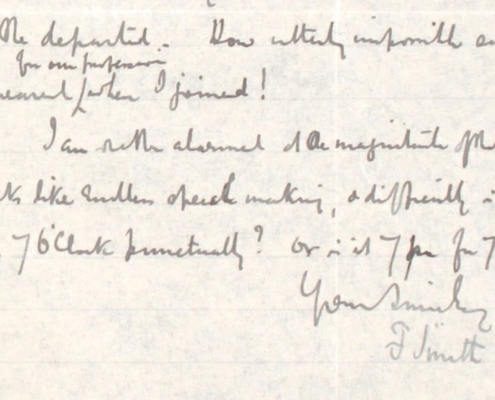 the departed. How utterly impossible
for our profession
when I joined!
I am rather alarmed at the magnitude of the
like endless speech making, & difficulty
7 o'Clock punctually? or is it 7 pm for 7
Yours sincerely
F Smith